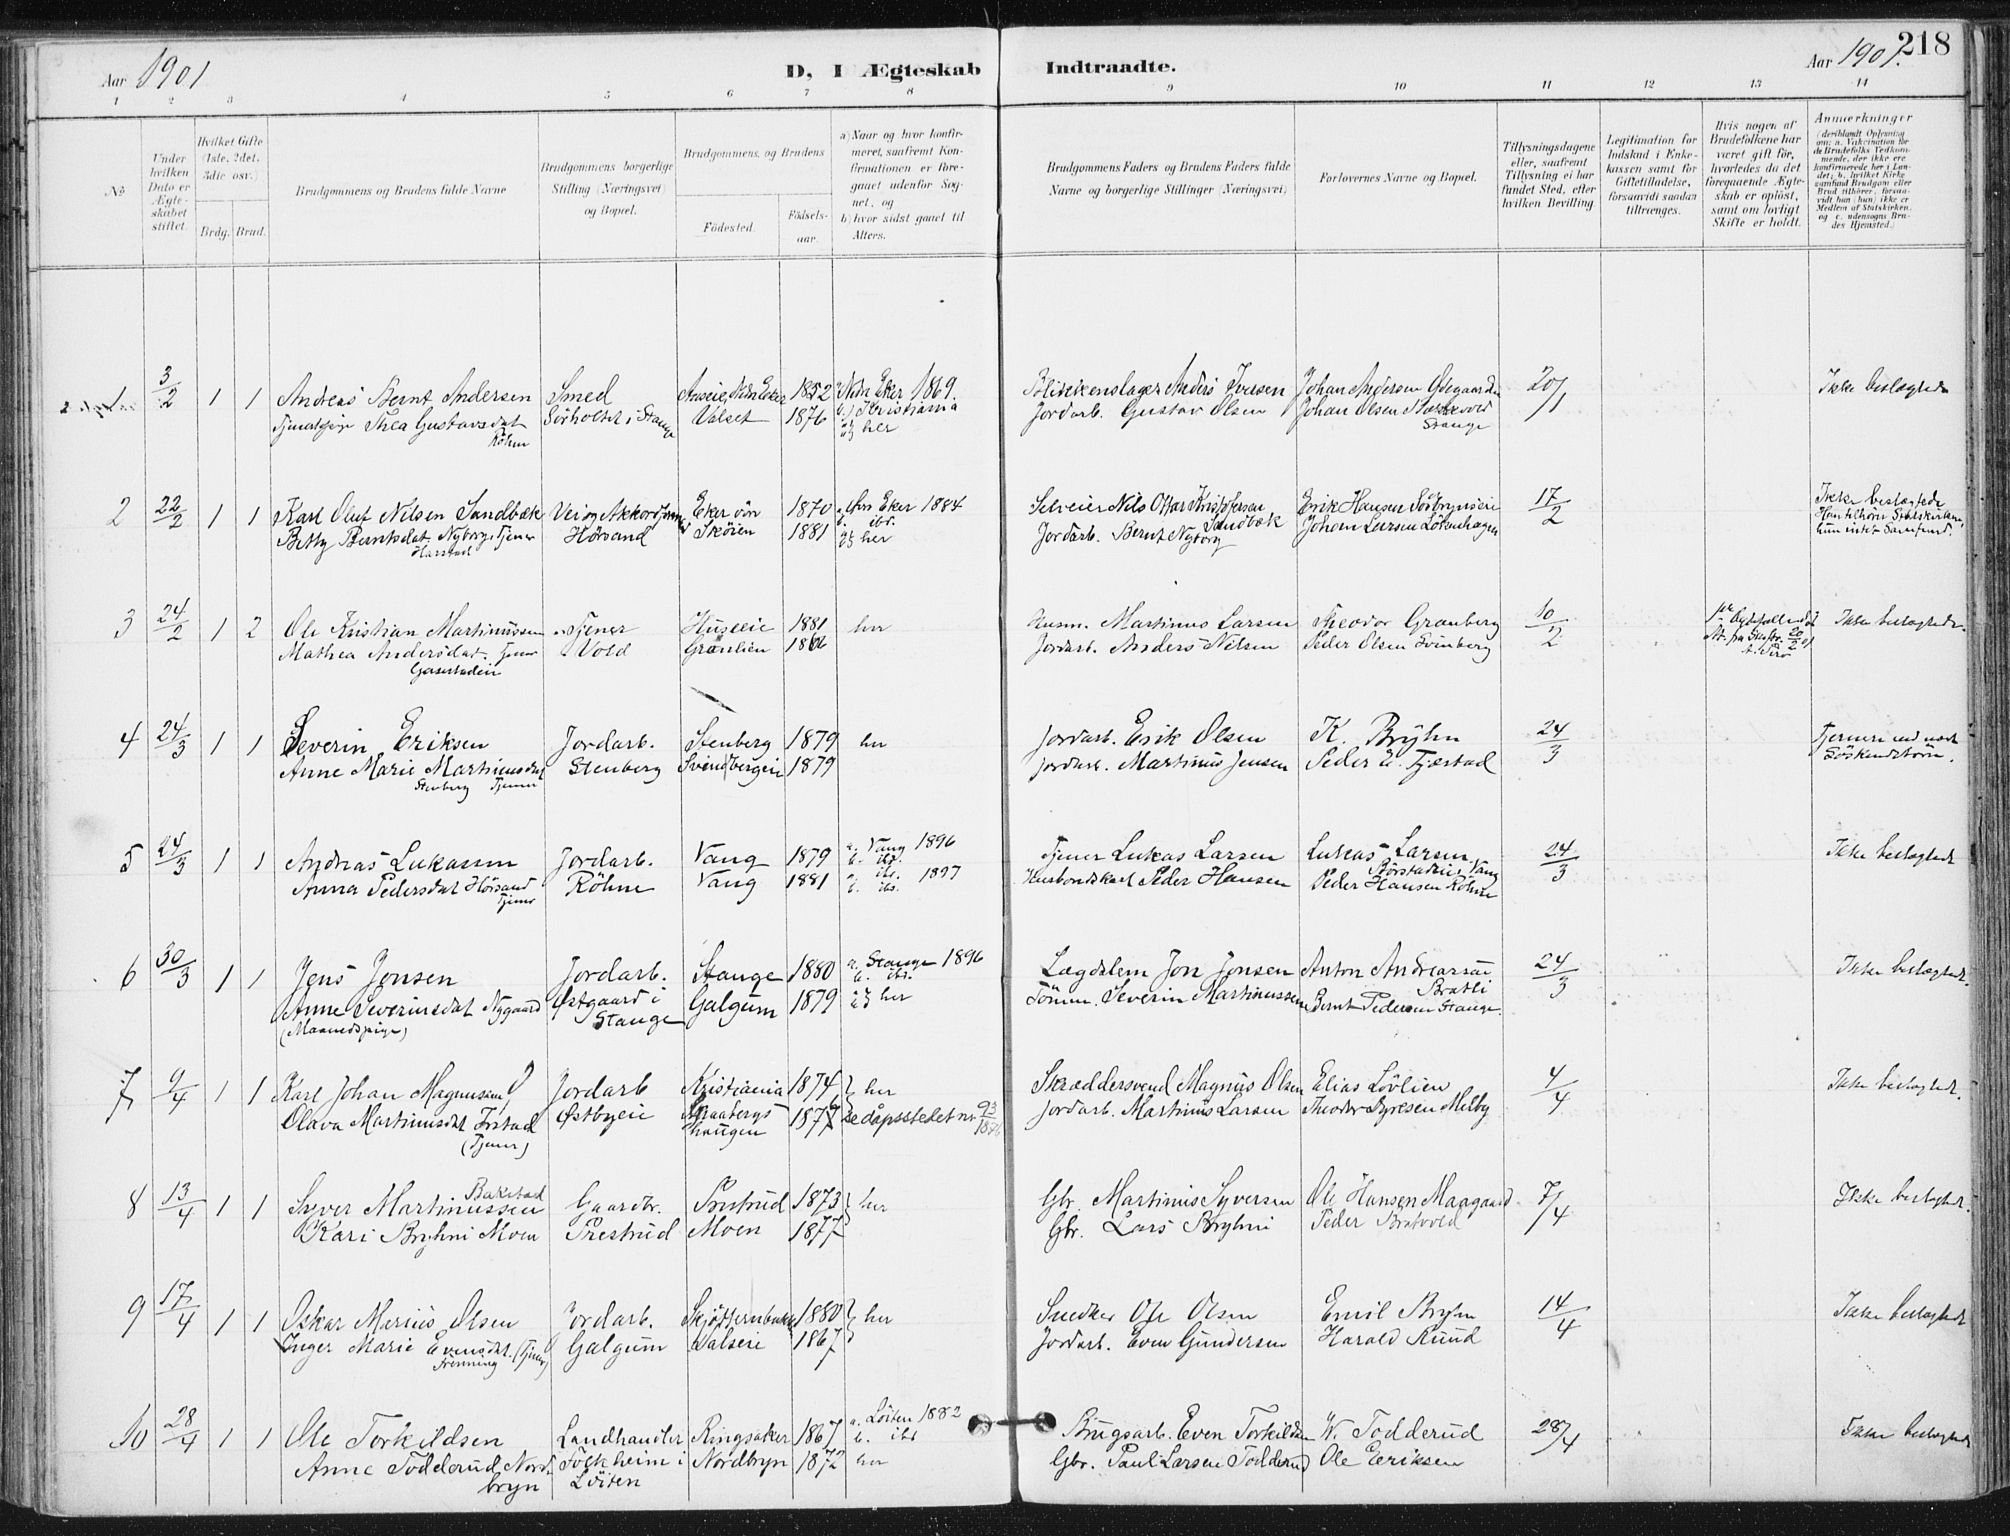 218
Aar 1901
D, I Ægteskab Indtraadte.
Aar 1901.
1 2 3 4 5 6 7 8 9 10 11 12 13 14
No
Under hvilken Dato er Ægteskabet stiftet.
Hvilket Gifte (1ste, 2det, 3die osv.)
Brdg. Brud.
Brudgommens og Brudens fulde Navne
Brudgommens borgerlige Stilling (Næringsvei) og Bopæl.
Brudgommens og Brudens
Födested.
Födselsaar.
a) Naar og hvor konfirmeret, saafremt Konfirmationen er foregaaet udenfor Sognet, og
b) hvor sidst gaaet til Alters.
Brudgommens Faders og Brudens Faders fulde Navne og borgerlige Stillinger (Næringsvei)
Forlovernes Navne og Bopæl.
Tillysningsdagene eller, saafremt Tillysning ei har fundet Sted, efter hvilken Bevilling
Legitimation for Indskud i Enkekassen samt for Giftetilladelse, forsaavidt saadan tiltrænges.
Hvis nogen af Brudefolkene har været gift för, hvorledes da det foregaaende Ægteskab er oplöst, samt om lovligt Skifte er holdt.
Anmerkninger
(deriblandt Oplysning om: a. Vakcination for de Brudefolks Vedkommende, der ikke ere konfirmerede her i Landet; b. hvilket Kirkesamfund Brudgom eller Brud tilhörer, forsaavidt han (hun) ikke er Medlem af Statskirken, og c. udensogns Brudes Hjemsted.)
1 3/2 1 1 Andreas Bernt Andersen Smed 1852 Ndr. Eker 1869. Blikkenslager Anders Iversen Johan Andersen 20/1 Ikke beslægtede
Thea Gustavsdat Sörholtet i Stange Valset 1876 b.) Kristiania Jordarb. Gustav Olsen Johan Olsen
Röhne her Stange
2 22/2 1 1 Karl Oluf Nilsen Sandbæk Eker 1870 Eker 1884 Selveier Nils Erik Hansen 17/2 Ikke beslægtede
Betty Berntsdat. Nyborg Tjener Hörsand Sköien 1881 her Sandbæk Johan Larsen Lökenhagen
Harstad Jordarb. Bernt Nyborg
3 24/2 1 2 Ole Kristian Martinussen Tjener Huseeie 1881 her Husm. Martinus Larsen Theodor Granberg 10/2 Ikke beslægtede.
Mathea Andersdat. Tjener Vold Grænlien Jordarb. Anders Nilsen Peder Olsen
4 24/3 1 1 Severin Eriksen Jordarb. Stenberg 1879 her Jordarb. Erik Olsen K. Bryhn 24/3
Anne Marie Martinusdat Stenberg Svendbergeie 1879 Jordarb. Martinus Jensen Peder E. Tjæstad
Stenberg Tjener Söskendebörn.
5 24/3 1 1 Andreas Lukassen Jordarb. Vang 1879 a. Vang 1896 Tjener Lukas Larsen Lukas Larsen 24/3 Ikke beslægtede
b. ibd. Börstadeie, Vang
Anna Pedersdat Hörsand Röhne Vang 1881 a. ibd. 1897 Husbondskarl Peder Hansen Peder Hansen Röhne
Tjener b. ibd.
6 30/3 1 1 Jens Jensen Jordarb. Stange 1880 a. Stange 1896 Lægdslem Jon Jonsen Anton Andreassen 24/3 Ikke beslægtede.
b. ibd. Bratli
Anne Severinsdat Nygaard Østgaard i Galgum 1879 her Tömm. Severin Martinussen Bernt Pedersen Stange
(Maanedspige) Stange
7 9/4 1 1 Karl Johan Magnussen Jordarb Kristiania 1874 her Skræddersvend Magnus Olsen Elias Lövlien 4/4 Ikke beslægtede.
Olava Martinusdat Østbyeie haugen se dåpsstedet nr. 93 Jordarb. Martinus Larsen Theodor Syresen Melby
(Tjener)
8 13/4 1 1 Bakstad
Syver Martinussen Gaardbr. Prestrud 1873 her Gbr. Martinus Syversen Ole Hansen Maagaard 7/4 Ikke beslægtede.
Kari Bryhni Moen Prestrud Moen 1877 Gbr. Lars Bryhni Peder Bratvold
9 17/4 1 1 Oskar Marius Olsen Jordarb. 1880 her Snedker Ole Olsen Emil Bryhn 14/4 Ikke beslægtede
Inger Marie Evensdat. (Tjener) Galgum Valseie 1867 Jordarb. Even Gundersen Harald Ruud
10 28/4 1 1 Ole Torkildsen Landhandler Ringsaker 1867 a. Löiten 1882 Brugsarb. Even Torkildsen W. Todderud 28/4 Ikke beslægtede
b. ibd
Anne Todderud Nord- Folkheim i Nordbryn 1872 her Gbr. Paul Larsen Todderud Ole Eriksen
bryn Löiten